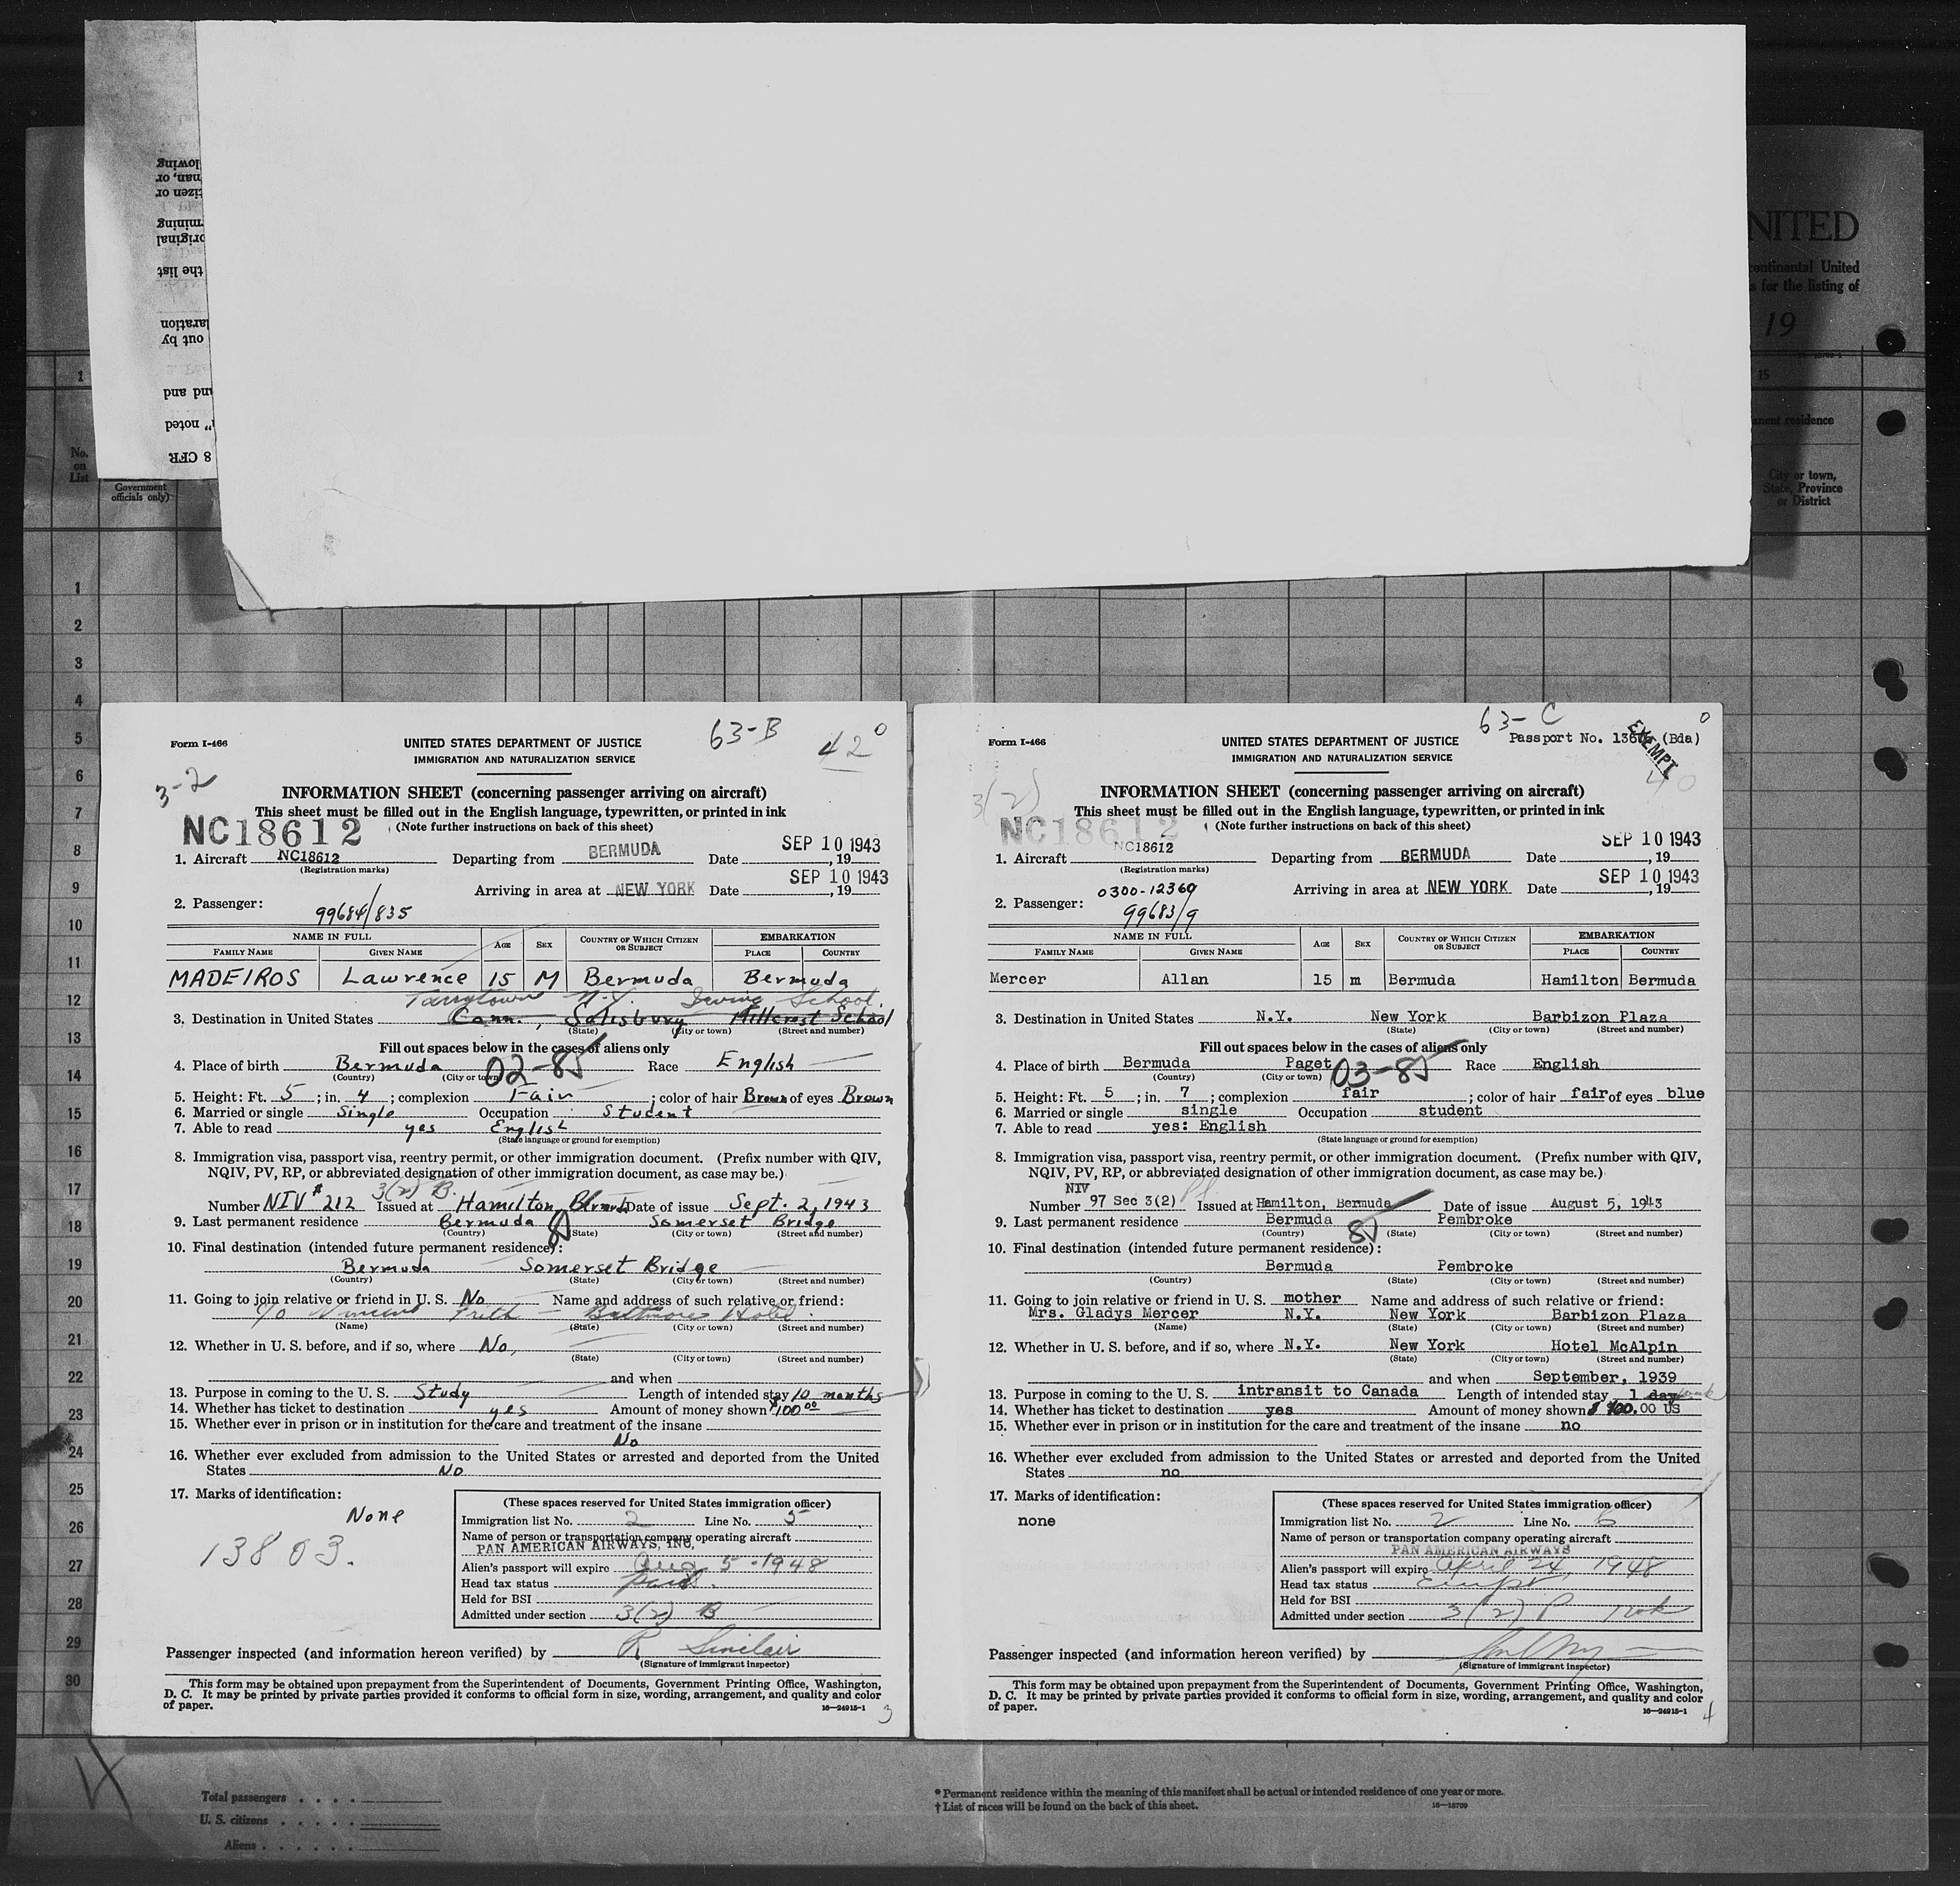 NITED
continental United
s for the listing of
19
15
anent residence
City or town,
State, Province
or District
lowing
nan, or
tizen or
rmining
original
the list
laration
out by
und and
," noted
8 CFR
1
No.
on
List
Government
officials only)
1
2
3
4
5
6
7
8
9
10
11
12
13
14
15
16
17
18
19
20
21
22
23
24
25
26
27
28
29
30
63-B
42
0
Form I-466
UNITED STATES DEPARTMENT OF JUSTICE
IMMIGRATION AND NATURALIZATION SERVICE
3-2
INFORMATION SHEET (concerning passenger arriving on aircraft)
This sheet must be filled out in the English language, typewritten, or printed in ink
NC18612
(Note further instructions on back of this sheet)
1. Aircraft NC18612 Departing from BERMUDA Date SEP 10 1943, 19
(Registration marks)
Arriving in area at NEW YORK Date SEP 10 1943, 19
2. Passenger: 99684/835
NAME IN FULL AGE SEX COUNTRY OF WHICH CITIZEN OR SUBJECT EMBARKATION
FAMILY NAME GIVEN NAME PLACE COUNTRY
MADEIROS Lawrence 15 M Bermuda Bermuda
Tarrytown N.Y. Irving School.
3. Destination in United States Conn., Salisbury Hillcrest School
(State) (City or town) (Street and number)
Fill out spaces below in the cases of aliens only
4. Place of birth Bermuda 02-85 Race English
(Country) (City or town)
5. Height: Ft. 5; in. 4; complexion Fair; color of hair Brown of eyes Brown
6. Married or single Single Occupation Student
7. Able to read yes English
(State language or ground for exemption)
8. Immigration visa, passport visa, reentry permit, or other immigration document. (Prefix number with QIV,
NQIV, PV, RP, or abbreviated designation of other immigration document, as case may be.)
3(2) B.
Number NIV #212 Issued at Hamilton, Bermuda Date of issue Sept. 2, 1943
9. Last permanent residence Bermuda 85 Somerset Bridge
(Country) (State) (City or town) (Street and number)
10. Final destination (intended future permanent residence):
Bermuda Somerset Bridge
(Country) (State) (City or town) (Street and number)
11. Going to join relative or friend in U. S. No Name and address of such relative or friend:
c/o Vincent Frith Baltmore Hotel
(Name) (State) (City or town) (Street and number)
12. Whether in U. S. before, and if so, where No,
(State) (City or town) (Street and number)
and when
13. Purpose in coming to the U. S. Study Length of intended stay 10 months
14. Whether has ticket to destination yes Amount of money shown $100.00
15. Whether ever in prison or in institution for the care and treatment of the insane
No
16. Whether ever excluded from admission to the United States or arrested and deported from the United
States No
17. Marks of identification:
None
13803.
(These spaces reserved for United States immigration officer)
Immigration list No. 2 Line No. 5
Name of person or transportation company operating aircraft
PAN AMERICAN AIRWAYS, INC.
Alien's passport will expire Aug. 5 - 1948
Head tax status paid.
Held for BSI
Admitted under section 3(2) B
Passenger inspected (and information hereon verified) by R. Sinclair
(Signature of immigrant inspector)
This form may be obtained upon prepayment from the Superintendent of Documents, Government Printing Office, Washington,
D. C. It may be printed by private parties provided it conforms to official form in size, wording, arrangement, and quality and color
of paper.
16—24915-1
3
63-C
0
Form I-466
UNITED STATES DEPARTMENT OF JUSTICE
IMMIGRATION AND NATURALIZATION SERVICE
Passport No. (Bda)
EXEMPT
40
3(2)
INFORMATION SHEET (concerning passenger arriving on aircraft)
This sheet must be filled out in the English language, typewritten, or printed in ink
NC18612
(Note further instructions on back of this sheet)
1. Aircraft NC18612 Departing from BERMUDA Date SEP 10 1943, 19
(Registration marks)
0300-12369 Arriving in area at NEW YORK Date SEP 10 1943, 19
2. Passenger: 99683/9
NAME IN FULL AGE SEX COUNTRY OF WHICH CITIZEN OR SUBJECT EMBARKATION
FAMILY NAME GIVEN NAME PLACE COUNTRY
Mercer Allan 15 m Bermuda Hamilton Bermuda
3. Destination in United States N.Y. New York Barbizon Plaza
(State) (City or town) (Street and number)
Fill out spaces below in the cases of aliens only
4. Place of birth Bermuda Paget 03-85 Race English
(Country) (City or town)
5. Height: Ft. 5; in. 7; complexion fair; color of hair fair of eyes blue
6. Married or single single Occupation student
7. Able to read yes: English
(State language or ground for exemption)
8. Immigration visa, passport visa, reentry permit, or other immigration document. (Prefix number with QIV,
NQIV, PV, RP, or abbreviated designation of other immigration document, as case may be.)
NIV
Number 97 Sec 3(2) Issued at Hamilton, Bermuda Date of issue August 5, 1943
9. Last permanent residence Bermuda 85 Pembroke
(Country) (State) (City or town) (Street and number)
10. Final destination (intended future permanent residence):
Bermuda Pembroke
(Country) (State) (City or town) (Street and number)
11. Going to join relative or friend in U. S. mother Name and address of such relative or friend:
Mrs. Gladys Mercer N.Y. New York Barbizon Plaza
(Name) (State) (City or town) (Street and number)
12. Whether in U. S. before, and if so, where N.Y. New York Hotel McAlpin
(State) (City or town) (Street and number)
and when September, 1939
13. Purpose in coming to the U. S. intransit to Canada Length of intended stay 1 day week
14. Whether has ticket to destination yes Amount of money shown $ 100.00 US
15. Whether ever in prison or in institution for the care and treatment of the insane no
16. Whether ever excluded from admission to the United States or arrested and deported from the United
States no
17. Marks of identification:
none
(These spaces reserved for United States immigration officer)
Immigration list No. 2 Line No. 6
Name of person or transportation company operating aircraft
PAN AMERICAN AIRWAYS
Alien's passport will expire April 24, 1948
Head tax status Exempt
Held for BSI
Admitted under section 3(2) P 1 wk
Passenger inspected (and information hereon verified) by
(Signature of immigrant inspector)
This form may be obtained upon prepayment from the Superintendent of Documents, Government Printing Office, Washington,
D. C. It may be printed by private parties provided it conforms to official form in size, wording, arrangement, and quality and color
of paper.
16—24915-1
4
Total passengers . . . .
U. S. citizens . . . . .
Aliens . . . . . .
* Permanent residence within the meaning of this manifest shall be actual or intended residence of one year or more.
† List of races will be found on the back of this sheet.
16—18709